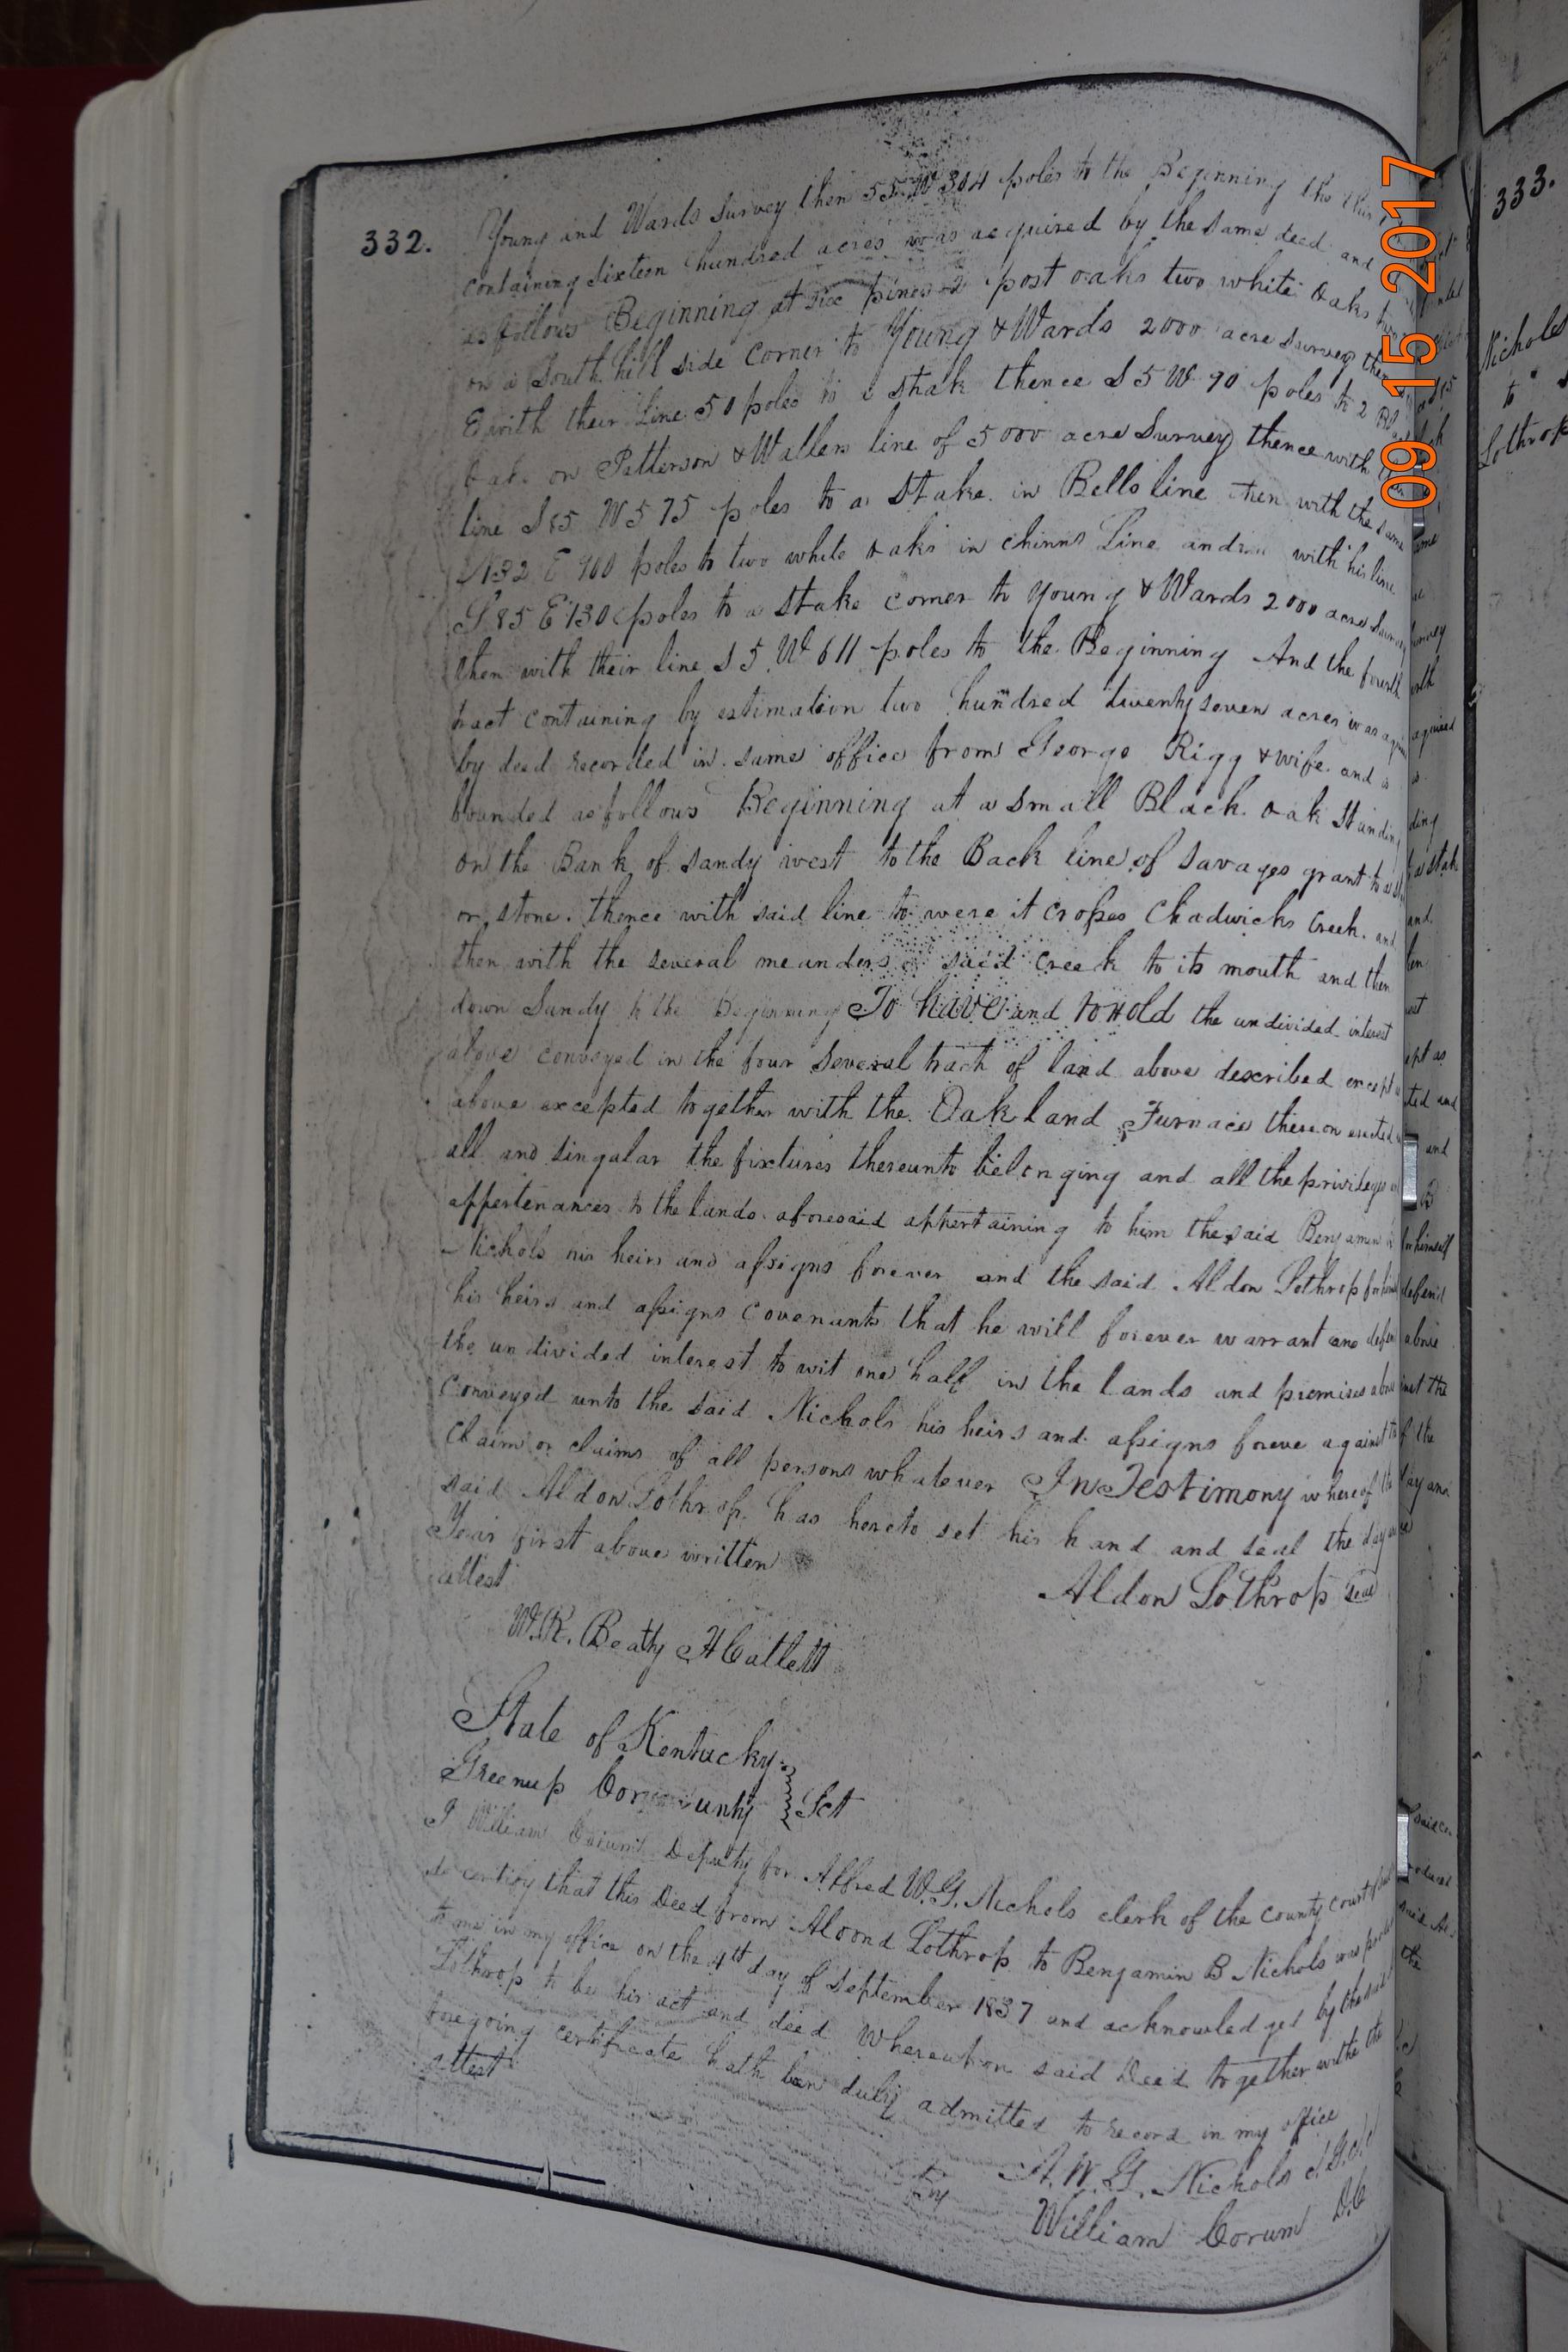 332.
Young and Wards Survey then S 5 W 304 poles to the Beginning the third
containing Sixteen hundred acres was acquired by the same deed and
as follows Beginning at six pines 2 post oaks two white Oaks
on a South hill side corner to Young & Wards 2000 acre Survey then
E with their line 50 poles to a stak thence S 5 W 90 poles to 2 Black
Oaks on Patterson & Wallers line of 5000 acre Survey thence with
line S 85 W 575 poles to a Stake in Bells line then with the same
N 32 E 900 poles to two white oaks in chinns Line and with his line
S 85 E 130 poles to a Stake corner to Young & Wards 2000 acre Survey
then with their line S 5 W 611 poles to the Beginning And the fourth
tract containing by estimation two hundred twenty seven acres was aquired
by deed recorded in same office from George Rigg & wife and is
bounded as follows Beginning at a small Black oak Standing
on the Bank of sandy west to the Back line of Savages grant to a stake
or stone. thence with said line to were it crosses Chadwicks Creek. and
then with the several meanders of said creek to its mouth and then
down Sandy to the Beginning To have and to Hold the undivided interest
above conveyed in the four several track of land above described except as
above excepted together with the Oakland Furnace thereon erected and
all and singular the fixtures thereunto belonging and all the privileges and
appertenances to the lands aforesaid appertaining to him the said Benjamin B
Nichols his heirs and assigns forever and the said Aldon Lothrop for himself
his heirs and assigns covenants that he will forever warrant and defend
the undivided interest to wit one half in the lands and premises above
conveyed unto the said Nichols his heirs and assigns foreve against the
claim or claims of all persons whatever In Testimony whereof the
said Aldon Lothrop has hereto set his hand and seal the day and
Year first above written
attest
Aldon Lothrop Seal
W. R. Beatty H Catlett
State of Kentucky
Greenup County Sct
I William Corum Deputy for Alfred W. G. Nichols clerk of the county court
do certify that this Deed from Aloond Lothrop to Benjamin B Nichols was
to me in my office on the 4th day of September 1837 and acknowledged by the said
Lothrop to be his act and deed Whereupon said Deed together withe the
foregoing certificate hath ben duly admitted to record in my office
attest
A. W. G. Nichols
By William Corum D.C
09 15 2017
333.
Nichols
to
Lothrop